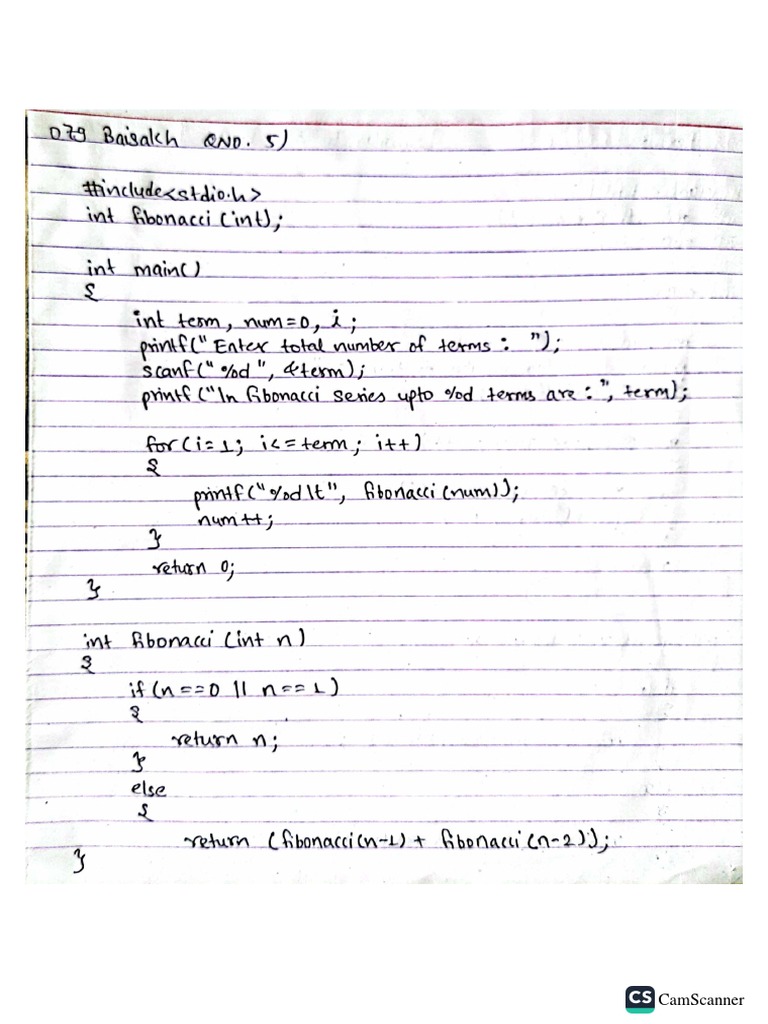 079 Baisakh QNO. 5)
#include<stdio.h>
int fibonacci (int);
int main()
{
int term, num=0, i;
printf("Enter total number of terms: ");
scanf("%d", &term);
printf("\n fibonacci series upto %d terms are:", term);
for(i=1; i<=term; i++)
{
printf("%d\t", fibonacci(num));
num++;
}
return 0;
}
int fibonacci (int n)
{
if(n==0 || n==1)
{
return n;
}
else
{
return (fibonacci(n-1) + fibonacci(n-2));
}
CS CamScanner